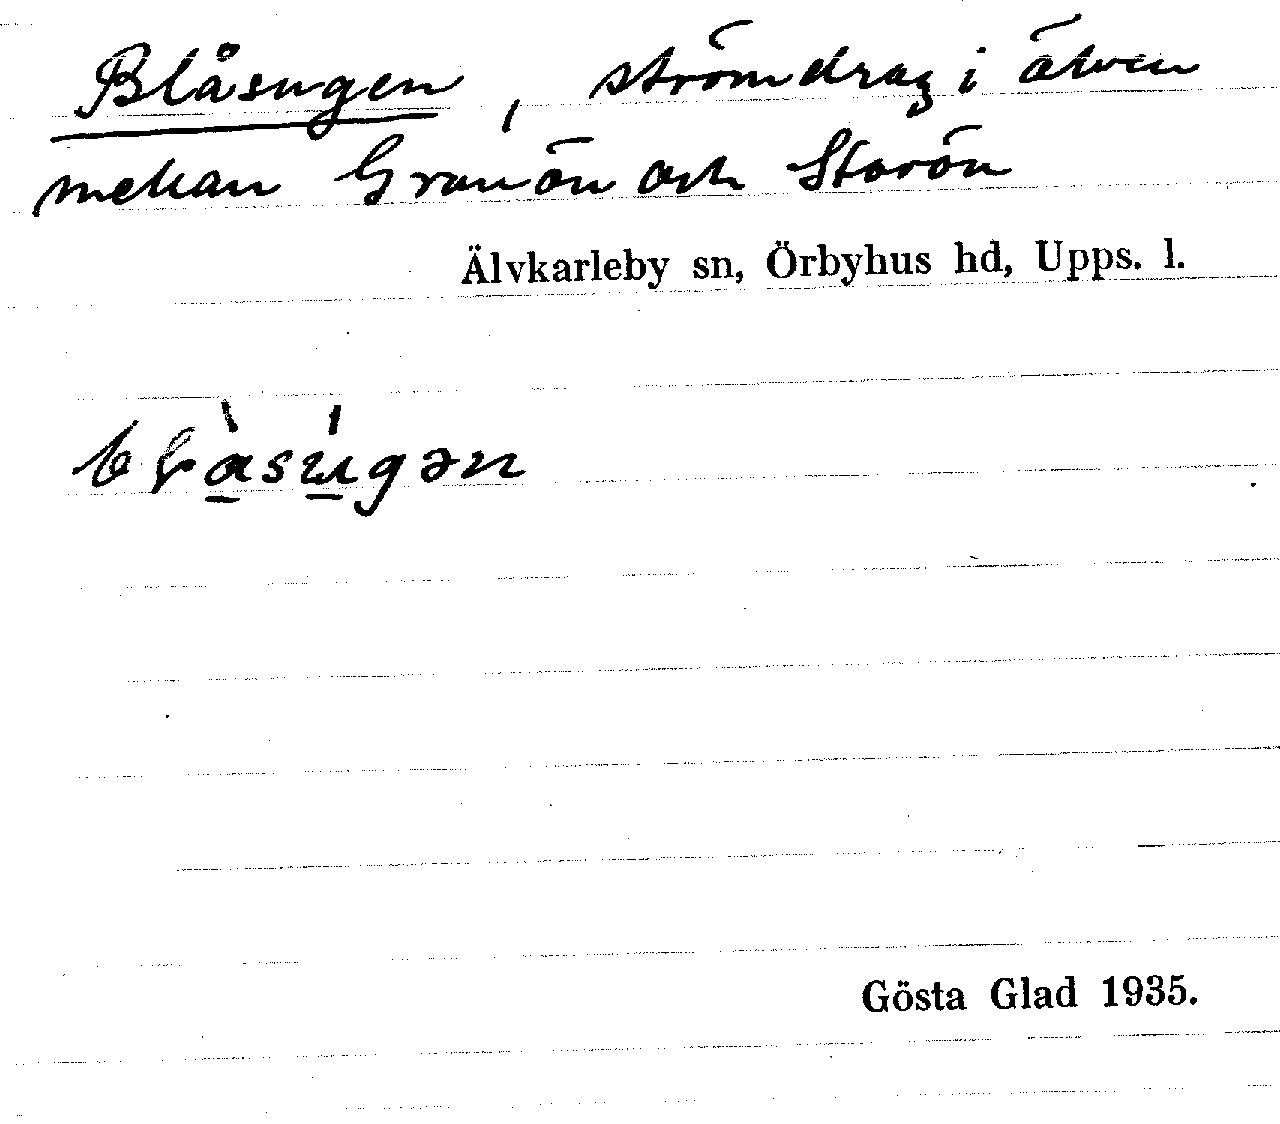 Blåsugen, strömdrag i älven
mellan Granön och Storön
Älvkarleby sn, Örbyhus hd, Upps. l.
Gösta Glad 1935.